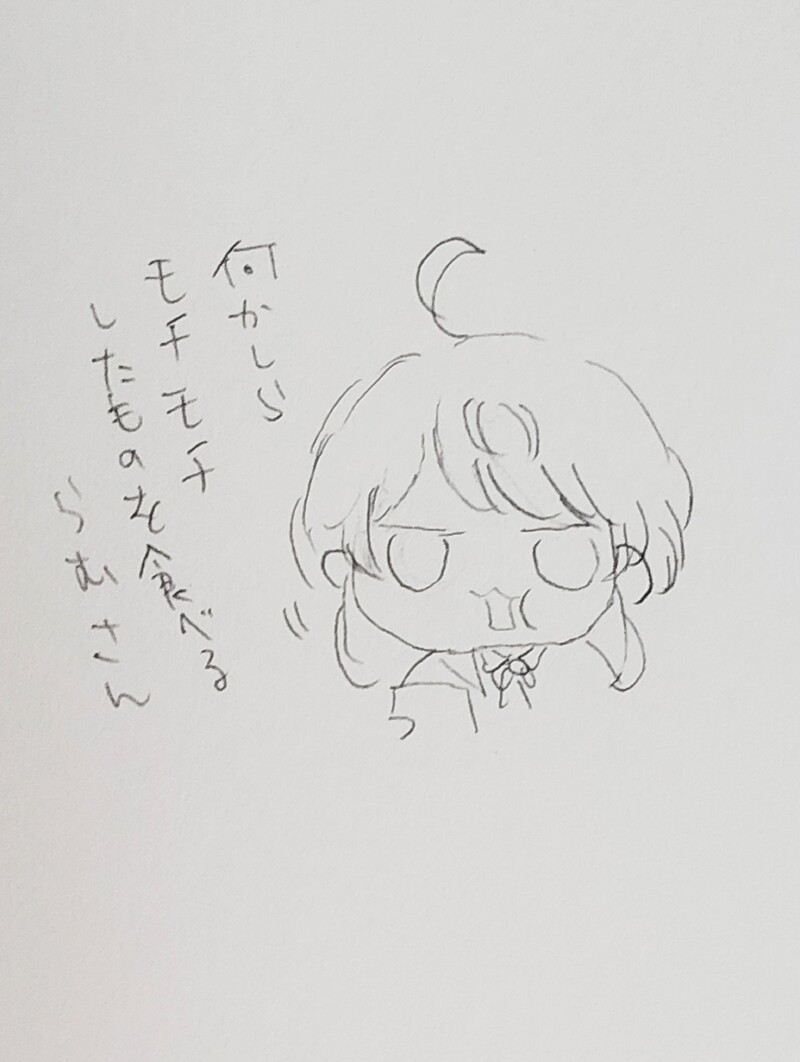 何かしら
モチモチ
したものを食べる
らむさん